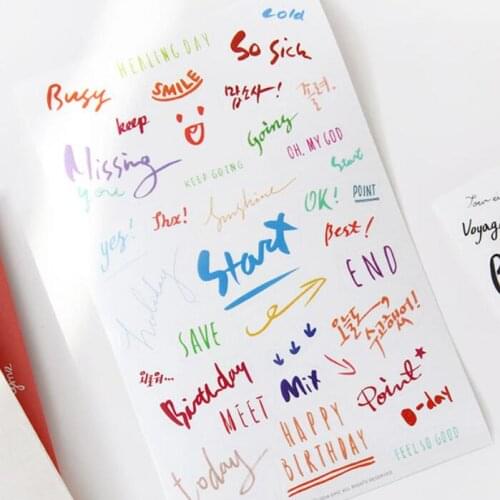 cold
HEALING DAY
So Sick
Busy
SMILE
맙소사!
졸려.
keep
Going
OH, MY GOD
Missing
you
KEEP GOING
Start
Sunshine
OK!
POINT
yes!
Thx!
Best!
Start
holiday
END
SAVE
오늘도
수고했어!
Birthday
Mix
Point
MEET
D-day
HAPPY
BIRTHDAY
FEEL SO GOOD
today
Voyag